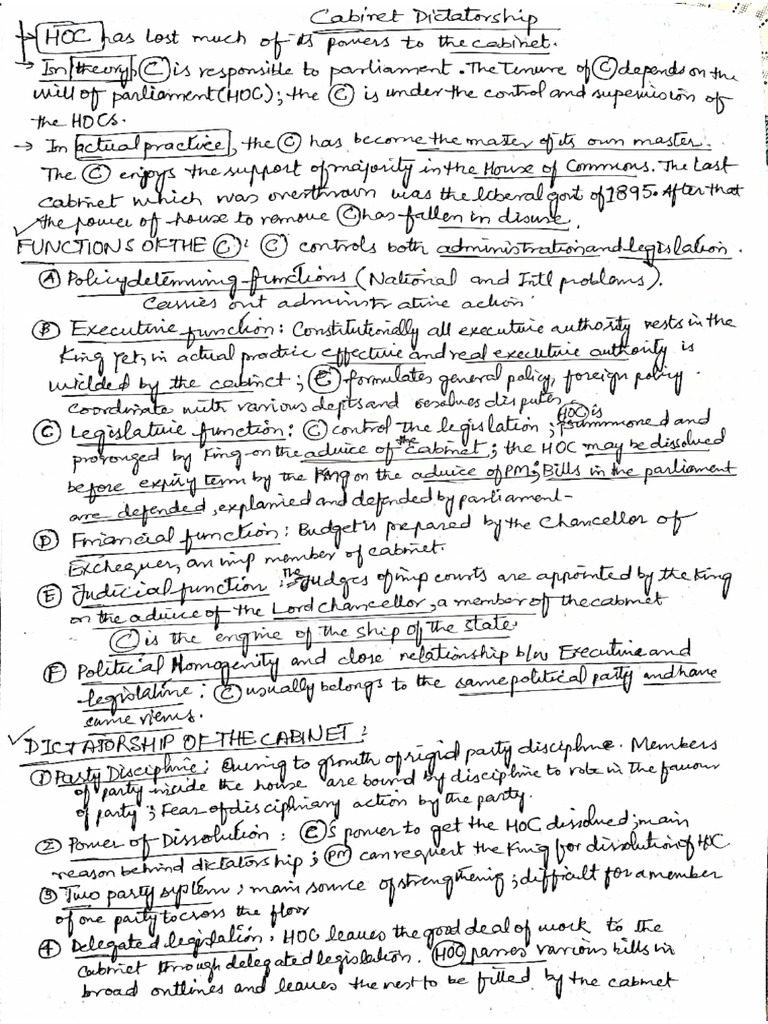 Cabinet Dictatorship
→ HOC has lost much of its powers to the cabinet.
→ In theory, C is responsible to parliament. The tenure of C depends on the
will of parliament (HOC); the C is under the control and supervision of
the HOCs.
→ In actual practice, the C has become the master of its own master.
The C enjoys the support of majority in the House of Commons. The Last
cabinet which was overthrown was the liberal govt of 1895. After that
the power of house to remove C has fallen in disuse.
✓ FUNCTIONS OF THE C: C controls both administration and legislation.
A Policy determining functions (National and Intl problems).
Carries out administrative action.
B Executive function: Constitutionally all executive authority vests in the
King yet, in actual practice effective and real executive authority is
wielded by the cabinet; C formulates general policy, foreign policy.
Coordinate with various depts and resolves disputes.
C Legislative function: C control the legislation; HOC is summoned and
prolonged by King on the advice of the cabinet; the HOC may be dissolved
before expiry term by the King on the advice of PM; Bills in the parliament
are defended, explained and defended by parliament-
D Financial function: Budget is prepared by the Chancellor of
Exchequer, an imp member of cabinet.
E Judicial function: The Judges of imp courts are appointed by the King
on the advice of the Lord chancellor, a member of the cabinet
C is the engine of the ship of the state.
F Political Homogenity and close relationship b/w Executive and
legislative: C usually belongs to the same political party and have
same views.
✓ DICTATORSHIP OF THE CABINET:
1 Party Discipline: Owing to growth of rigid party discipline. Members
of party inside the house are bound by discipline to vote in the favour
of party; Fear of disciplinary action by the party.
2 Power of Dissolution: C's power to get the HOC dissolved; main
reason behind dictatorship; PM can request the King for dissolution of HOC
3 Two party system; main source of strengthening; difficult for a member
of one party to cross the floor
4 Delegated legislation. HOC leaves the good deal of work to the
cabinet through delegated legislation. HOC passes various bills in
broad outlines and leaves the rest to be filled by the cabinet